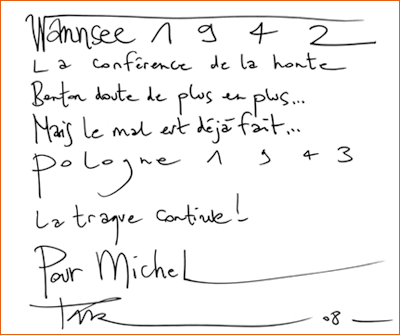 Wannsee 1942
La conférence de la honte
Benton doute de plus en plus...
Mais le mal est déjà fait...
Pologne 1943
La traque continue!
Pour Michel
08